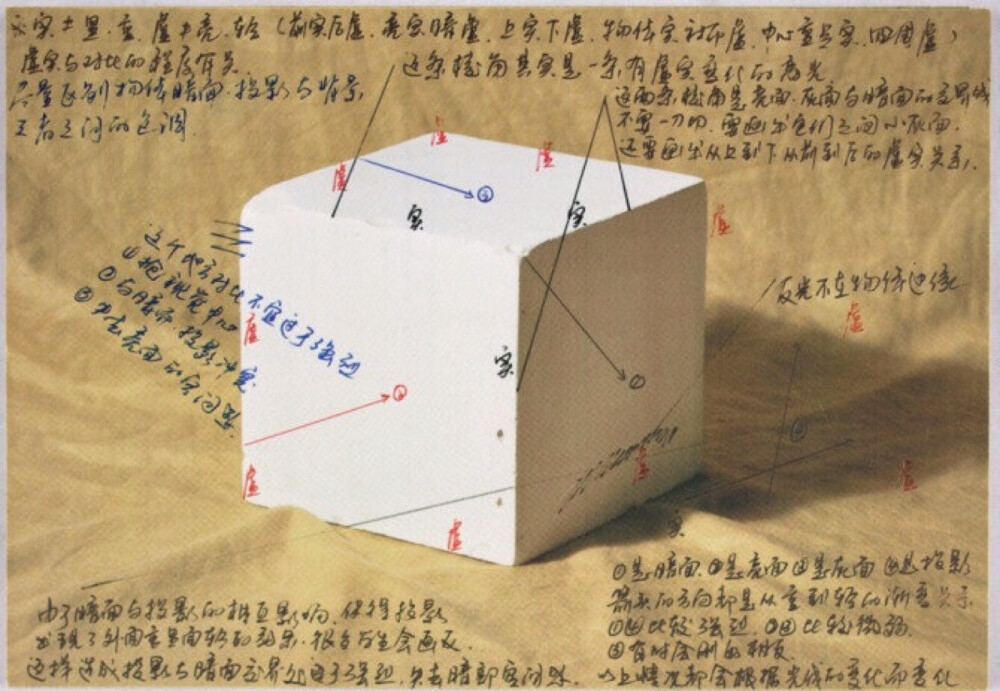 实=黑、重、虚=亮、轻（前实后虚、亮实暗虚、上实下虚、物体实衬布虚、中心重点实、四周虚）
虚实与对比的程度有关
尽量区别物体暗面、投影与背景
三者之间的色调
这条棱角其实是一条有虚实变化的高光
这两条棱角是亮面、灰面与暗面的交界线
不要一刀切，要画出它们之间小灰面，
还要画出从上到下从前到后的虚实关系，
虚
虚
虚
②
实
实
虚
这个地方对比不宜过于强烈
①抢视觉中心
②与暗面、投影冲突
③失去亮面的空间感
反光不在物体边缘
虚
虚
实
①
虚
虚
虚
虚
实
虚
①是暗面 ②是亮面 ③是灰面 ④是投影
箭头的方向都是从重到轻的渐变关系
①④比较强烈，②③比较微弱
③有时会刚好相反
以上情况都会根据光线的变化而变化
由于暗面与投影的相互影响，使得投影
出现了外面重里面轻的效果，很多考生会画反
这样造成投影与暗面交界处过于强烈，失去暗部空间感.